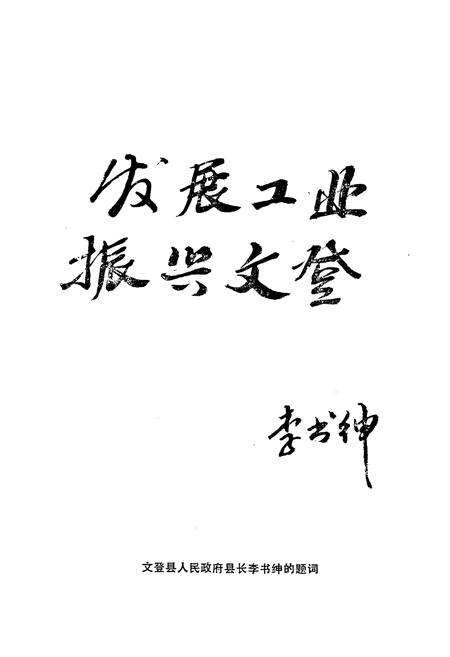 发展工业
振兴文登
李书绅
文登县人民政府县长李书绅的题词